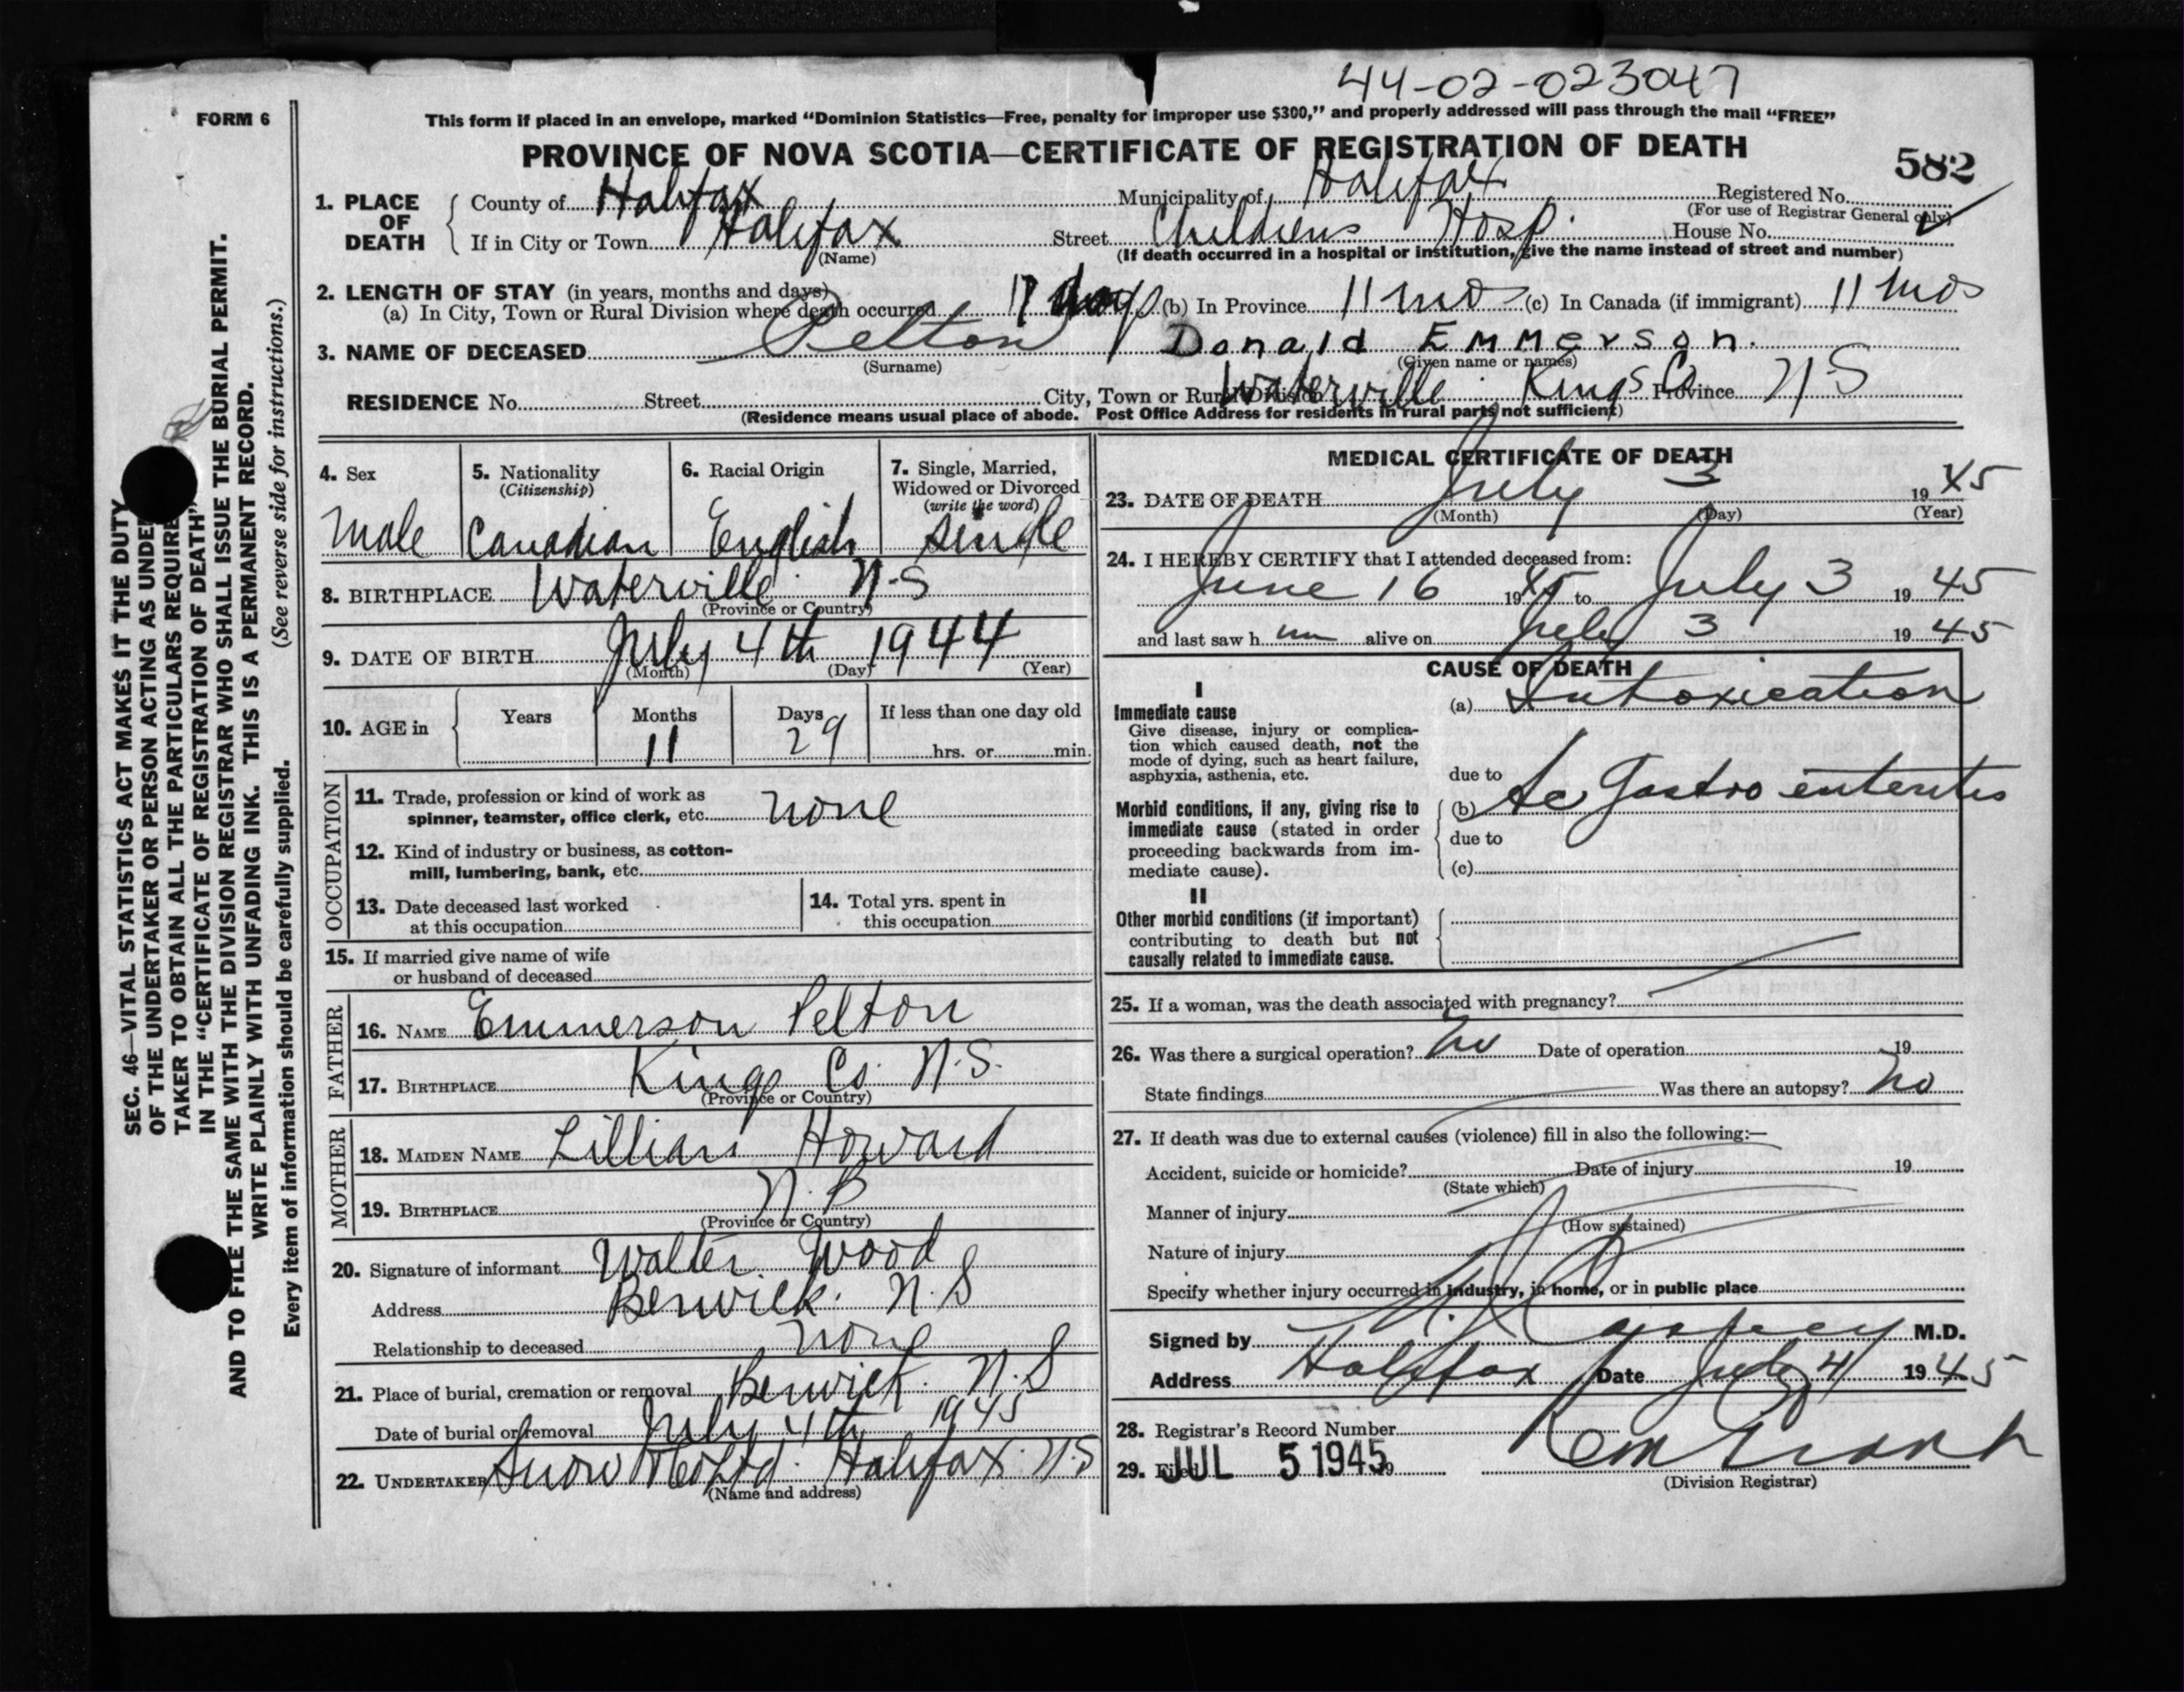 44-02-023047
FORM 6
This form if placed in an envelope, marked “Dominion Statistics—Free, penalty for improper use $300,” and properly addressed will pass through the mail “FREE”
PROVINCE OF NOVA SCOTIA—CERTIFICATE OF REGISTRATION OF DEATH
582
1. PLACE OF DEATH
County of Halifax Municipality of Halifax Registered No.
(For use of Registrar General only)
If in City or Town Halifax Street Childrens Hosp. House No.
(Name) (If death occurred in a hospital or institution, give the name instead of street and number)
2. LENGTH OF STAY (in years, months and days)
(a) In City, Town or Rural Division where death occurred 17 days (b) In Province 11 mos (c) In Canada (if immigrant) 11 mos
3. NAME OF DECEASED Pelton Donald Emmerson.
(Surname) (Given name or names)
RESIDENCE No. Street City, Town or Rural Division Waterville Kings Co Province N S
(Residence means usual place of abode. Post Office Address for residents in rural parts not sufficient)
4. Sex
Male
5. Nationality
(Citizenship)
Canadian
6. Racial Origin
English
7. Single, Married,
Widowed or Divorced
(write the word)
single
8. BIRTHPLACE Waterville N.S
(Province or Country)
9. DATE OF BIRTH July 4th 1944
(Month) (Day) (Year)
10. AGE in
Years Months Days If less than one day old
11 29 hrs. or min.
OCCUPATION
11. Trade, profession or kind of work as
spinner, teamster, office clerk, etc. none
12. Kind of industry or business, as cotton-
mill, lumbering, bank, etc.
13. Date deceased last worked
at this occupation
14. Total yrs. spent in
this occupation
15. If married give name of wife
or husband of deceased
FATHER
16. NAME Emmerson Pelton
17. BIRTHPLACE Kings Co. N.S.
(Province or Country)
MOTHER
18. MAIDEN NAME Lillian Howard
19. BIRTHPLACE N.B
(Province or Country)
20. Signature of informant Walter Wood
Address Berwick. N.S
Relationship to deceased none
21. Place of burial, cremation or removal Berwick. N.S
Date of burial or removal July 4th 1945
22. UNDERTAKER Snow & Co Ltd. Halifax N.S
(Name and address)
MEDICAL CERTIFICATE OF DEATH
23. DATE OF DEATH July 3 19 45
(Month) (Day) (Year)
24. I HEREBY CERTIFY that I attended deceased from:
June 16 19 45 to July 3 19 45
and last saw h im alive on July 3 19 45
CAUSE OF DEATH
I
Immediate cause
Give disease, injury or complica-
tion which caused death, not the
mode of dying, such as heart failure,
asphyxia, asthenia, etc.
(a) Intoxication
due to
Morbid conditions, if any, giving rise to
immediate cause (stated in order
proceeding backwards from im-
mediate cause).
(b) Ac Gastro enteritis
due to
(c)
II
Other morbid conditions (if important)
contributing to death but not
causally related to immediate cause.
25. If a woman, was the death associated with pregnancy?
26. Was there a surgical operation? No Date of operation 19
State findings Was there an autopsy? No
27. If death was due to external causes (violence) fill in also the following:—
Accident, suicide or homicide? Date of injury 19
(State which)
Manner of injury
(How sustained)
Nature of injury
Specify whether injury occurred in industry, in home, or in public place
Signed by M.D.
Address Halifax Date July 4 19 45
28. Registrar's Record Number
29. Filed JUL 5 1945 19
(Division Registrar)
SEC. 46—VITAL STATISTICS ACT MAKES IT THE DUTY
OF THE UNDERTAKER OR PERSON ACTING AS UNDER
TAKER TO OBTAIN ALL THE PARTICULARS REQUIRE
IN THE “CERTIFICATE OF REGISTRATION OF DEATH”
AND TO FILE THE SAME WITH THE DIVISION REGISTRAR WHO SHALL ISSUE THE BURIAL PERMIT.
WRITE PLAINLY WITH UNFADING INK. THIS IS A PERMANENT RECORD.
Every item of information should be carefully supplied. (See reverse side for instructions.)